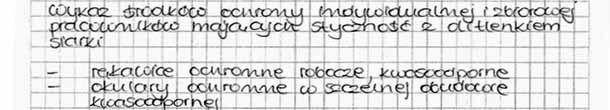 wykaz środków ochrony indywidualnej i zbiorowej
pracowników mających styczność z ditlenkiem
siarki
- rękawice ochronne robocze, kwasoodporne
- okulary ochronne w szczelnej obudowie
kwasoodpornej